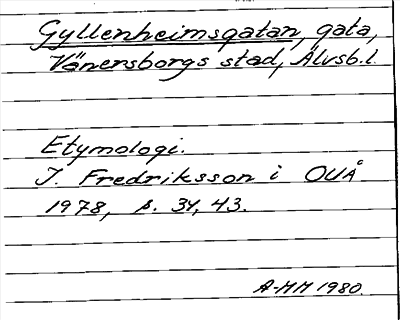 Gyllenheimsgatan, gata,
Vänersborgs stad, Älvsb. l.
Etymologi.
I. Fredriksson i OUÅ
1978, s. 34, 43.
A-MM 1980.